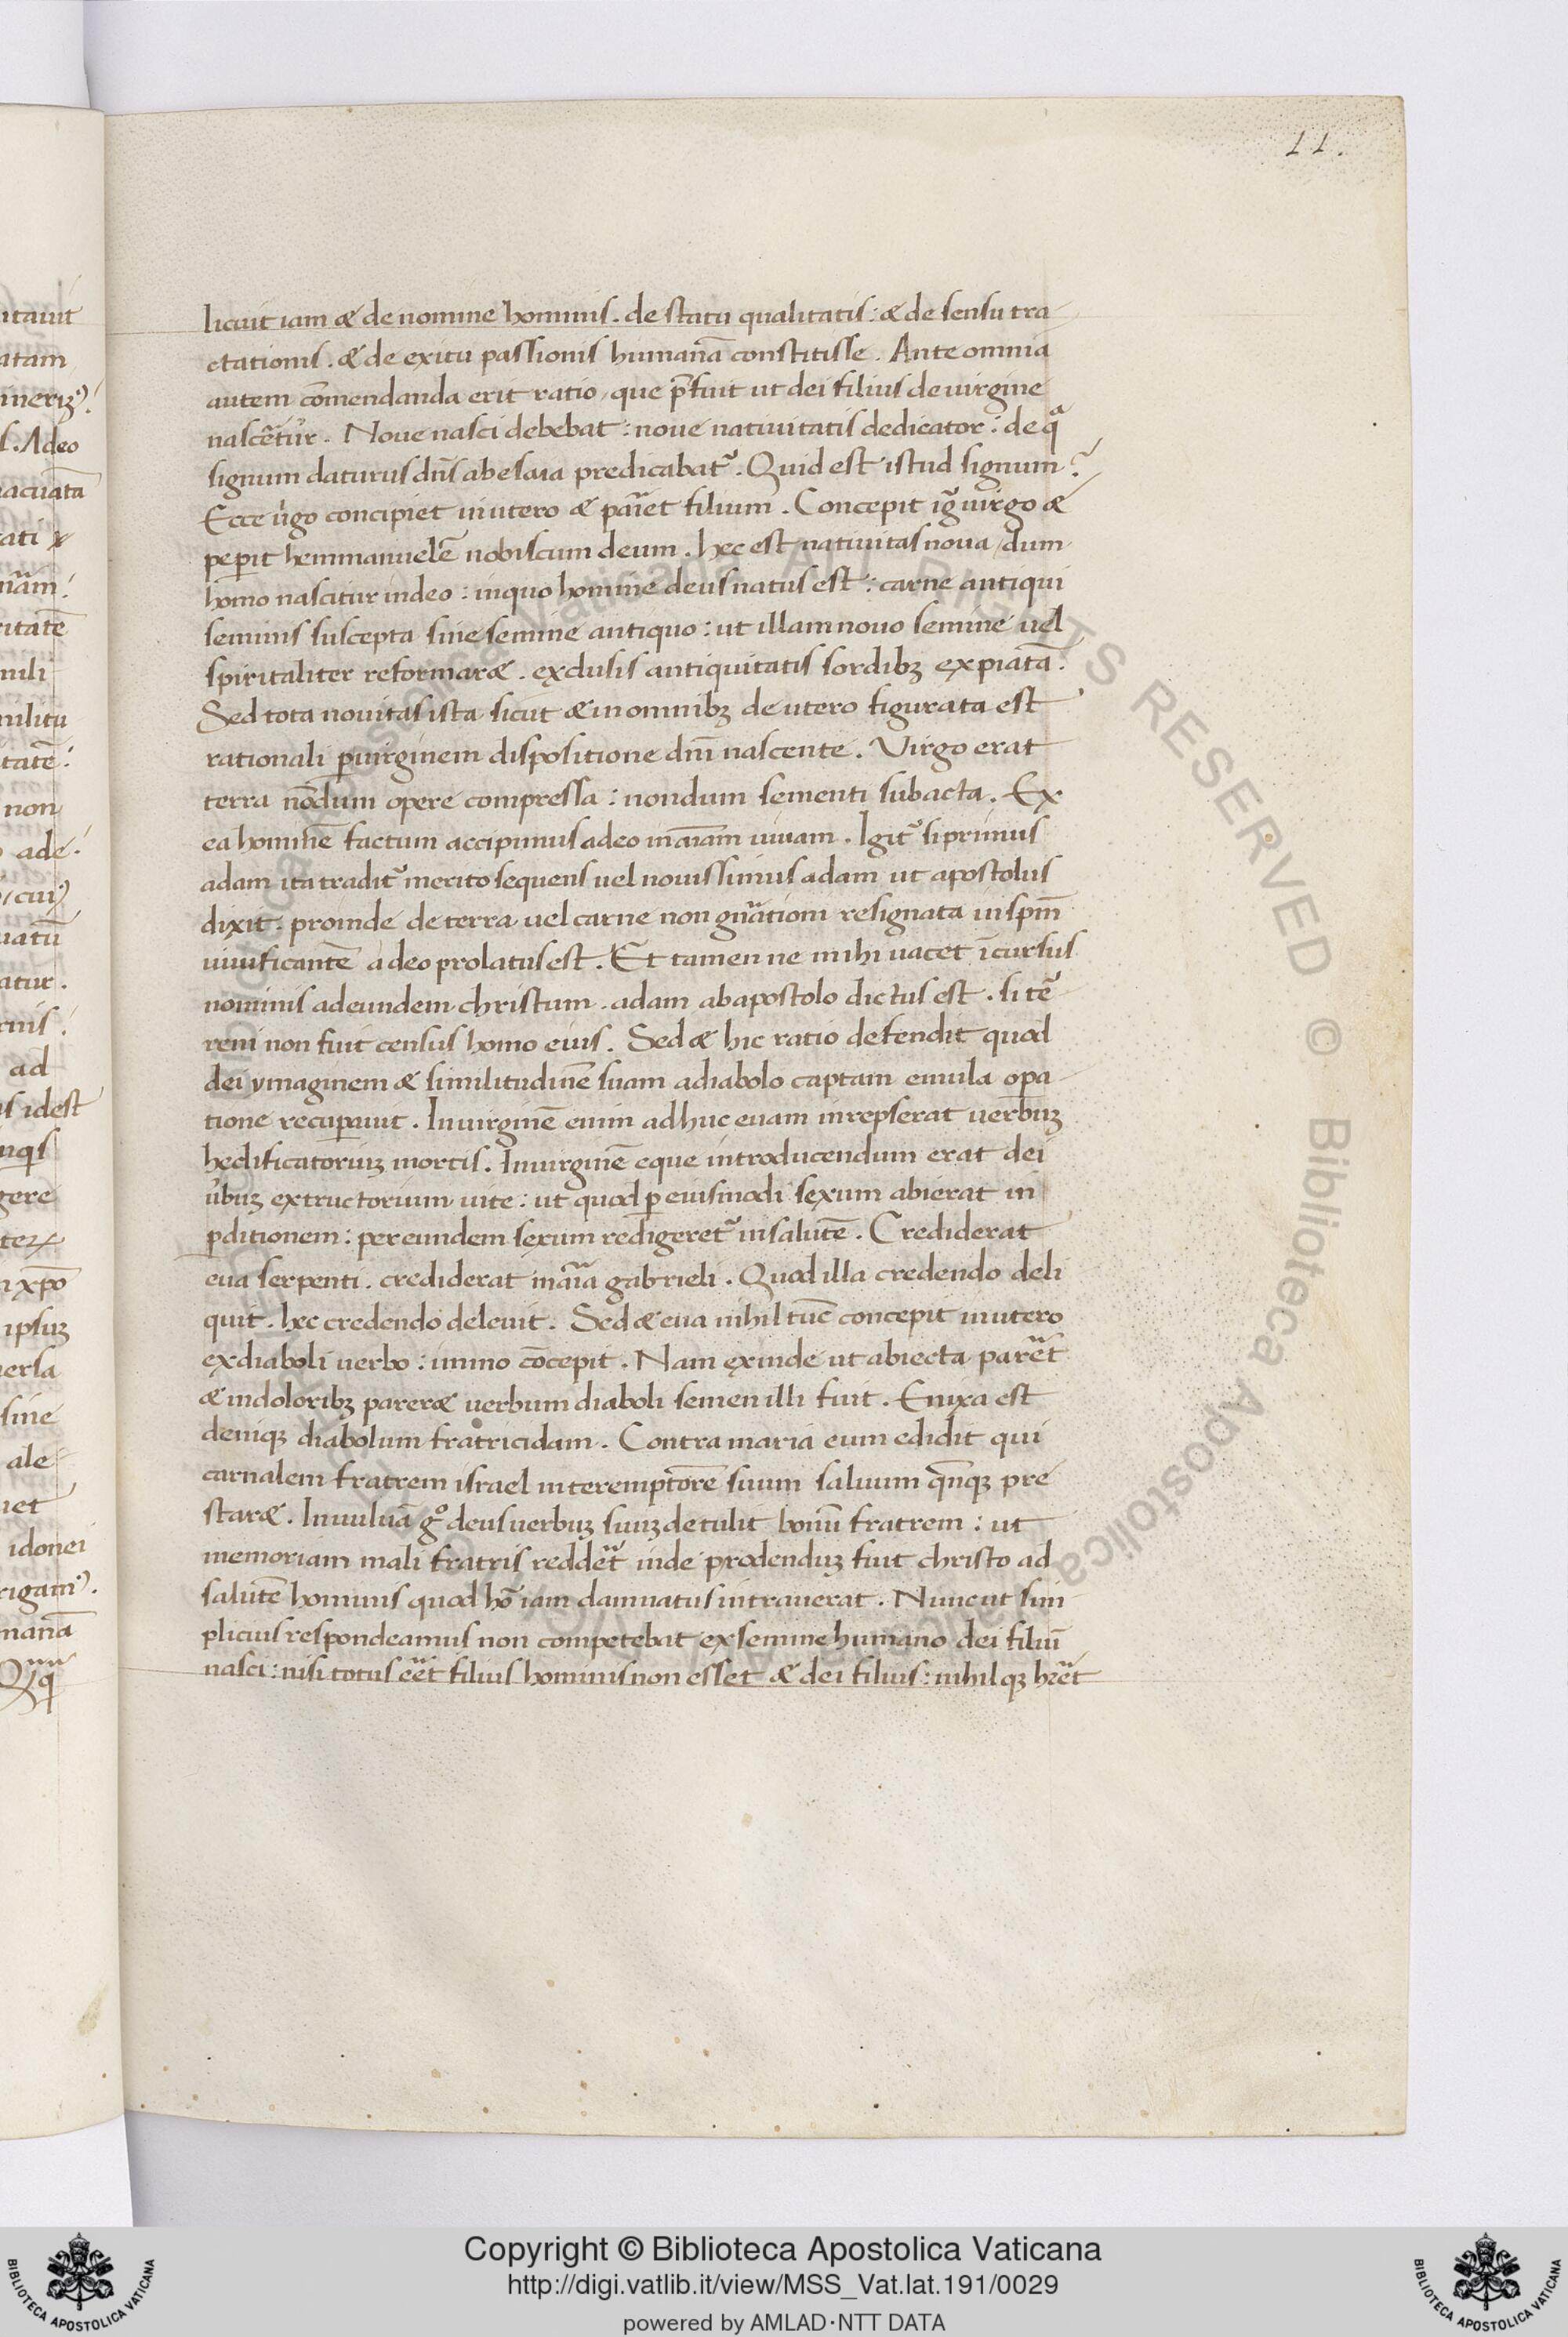 11.
licuit iam & de nomine hominis. de statu qualitatis: & de sensu tra
ctationis. & de exitu passionis humanā constitisse. Ante omnia
autem cōmendanda erit ratio, que p̄fuit ut dei filius de uirgine
nascēt᷑ur. Noue nasci debebat: noue natiuitatis dedicator: de qª
signum daturus dn̄s abesaia predicabat᷑. Quid est istud signum?
Ecce ūgo concipiet in utero & pariet filium. Concepit ig̃ uirgo &
peꝑit hemmanuelē nobiscum deum. hec est natiuitas noua, dum
homo nascitur in deo: in quo homine deus natus est: carne antiqui
seminis suscepta sine semine antiquo: ut illam nouo semine uel
spiritaliter reformar&. exclusis antiquitatis sordibꝫ expiatā.
Sed tota nouitas ista sicut & in omnibꝫ de utero figurata est
rationali ꝑ uirginem dispositione dn̄i nascente. Virgo erat
terra nōdum opere compressa: nondum sementi subacta. Ex
ea hominē factum accipimus adeo in aīam uiuam. Igit᷑ si primus
adam ita tradit᷑ merito sequens uel nouissimus adam ut apostolus
dixit. proinde de terra uel carne non gn̄ationi resignata in spm̄
uiuificantē a deo prolatus est. Et tamen ne mihi uacet īcursus
nominis adeundem christum. adam ab apostolo dictus est. si tē
reni non fuit census homo eius. Sed & hic ratio defendit quod
dei ymaginem & similitudinē suam adiabolo captam emula oꝑa
tione recuꝑauit. In uirginē enim adhuc euam inrepserat uerbuꝫ
hedificatoriuꝫ mortis. In uirginē eque introducendum erat dei
ūbuꝫ extructorium uite: ut quod ꝑ eiusmodi sexum abierat in
ꝑditionem: per eundem sexum redigeret᷑ in salutē. Crediderat
eua serpenti. crediderat maria gabrieli. Quod illa credendo deli
quit. hec credendo deleuit. Sed & eua nihil tūc concepit in utero
ex diaboli uerbo: immo cōcepit. Nam exinde ut abiecta parēt
& in doloribꝫ parer& uerbum diaboli semen illi fuit. Enixa est
deniqꝫ diabolum fratricidam. Contra maria eum edidit qui
carnalem fratrem israel interemptorē suum saluum qn̄qꝫ pre
star&. In uuluā gº deus uerbuꝫ suuꝫ detulit bonū fratrem: ut
memoriam mali fratris reddēt inde prodenduꝫ fuit christo ad
salutē hominis quod hō iam damnatus intrauerat. Nunc ut sim
plicius respondeamus non competebat ex semine humano dei filiū
nasci: nisi totus eēt filius hominis non esset & dei filius: nihilqꝫ hrēt
Copyright © Biblioteca Apostolica Vaticana
http://digi.vatlib.it/view/MSS_Vat.lat.191/0029
powered by AMLAD·NTT DATA